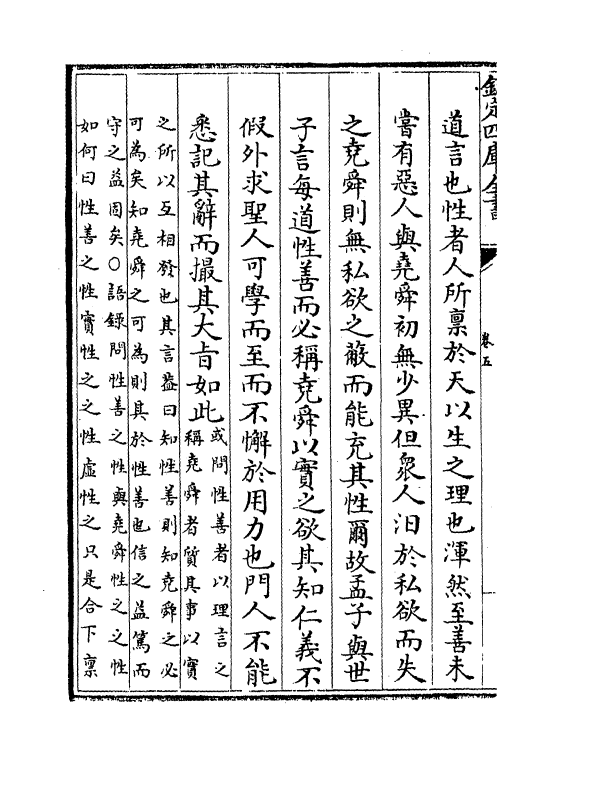 欽定四庫全書
卷五
道言也性者人所禀於天以生之理也渾然至善未
嘗有惡人與堯舜初無少異但衆人汩於私欲而失
之堯舜則無私欲之蔽而能充其性爾故孟子與世
子言每道性善而必稱堯舜以實之欲其知仁義不
假外求聖人可學而至而不懈於用力也門人不能
悉記其辭而撮其大旨如此
或問性善者以理言之
稱堯舜者質其事以實
之所以互相發也其言葢曰知性善則知堯舜之必
可為矣知堯舜之可為則其於性善也信之益篤而
守之益固矣○語錄問性善之性與堯舜性之之性
如何曰性善之性實性之之性虛性之只是合下禀